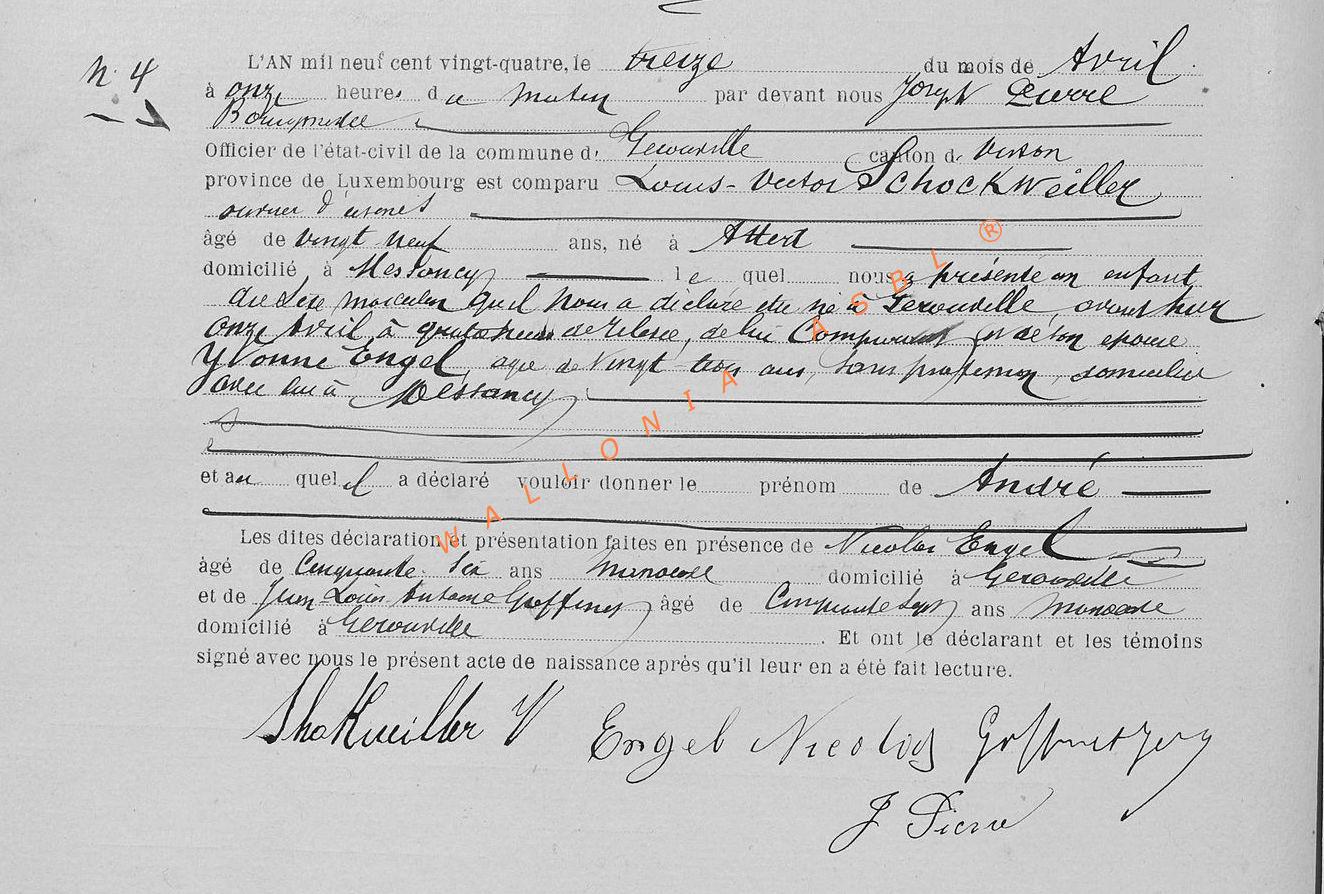 N. 4
L'AN mil neuf cent vingt-quatre, le treize du mois de Avril
à onze heures du matin par devant nous Joseph Pierre
Bourgmestre
Officier de l'état-civil de la commune de Gerouville canton de Virton
province de Luxembourg est comparu Louis-Victor Schockweiller
ouvrier d'usines
âgé de vingt neuf ans, né à Attert
domicilié à Messancy lequel nous a présenté un enfant
du sexe masculin qu'il nous a déclaré être né à Gerouville, avant hier
onze Avril à quatre heures de relevée, de lui Comparant et de son épouse
Yvonne Engel, agée de Vingt trois ans, sans profession, domiciliée
avec lui à Messancy
et auquel il a déclaré vouloir donner le prénom de André
Les dites déclaration et présentation faites en présence de Nicolas Engel
âgé de Cinquante six ans domicilié à Gerouville
et de Jean-Louis Antoine Goffinet âgé de Cinquante sept ans
domicilié à Gerouville . Et ont le déclarant et les témoins
signé avec nous le présent acte de naissance après qu'il leur en a été fait lecture.
Shokweiller V Engel Nicolas
J Pierre
WALLONIA ASBL ®